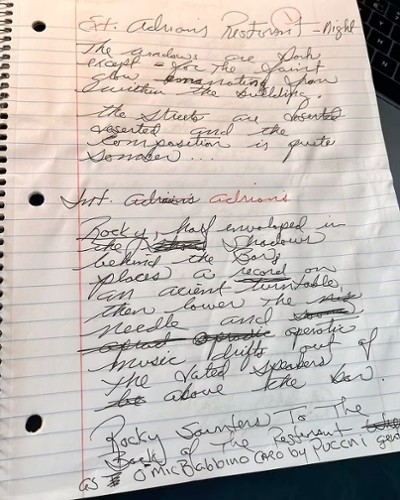 Ext. Adrians Restorant - Night
The windows are dark
except - for the faint
glow emanating from
within the building.
the streets are deserted
deserted and the
composition is quite
somber ...
Int. Adrians adrians
Rocky, half enveloped in
the shadows
behind the bar,
places a record on
an acient turntable,
then lower the
needle and
operatic
music drifts out of
the dated speakers
above the bar.
Rocky Saunters To The
Back of The Restorant
as O mio Babbino caro by Puccini